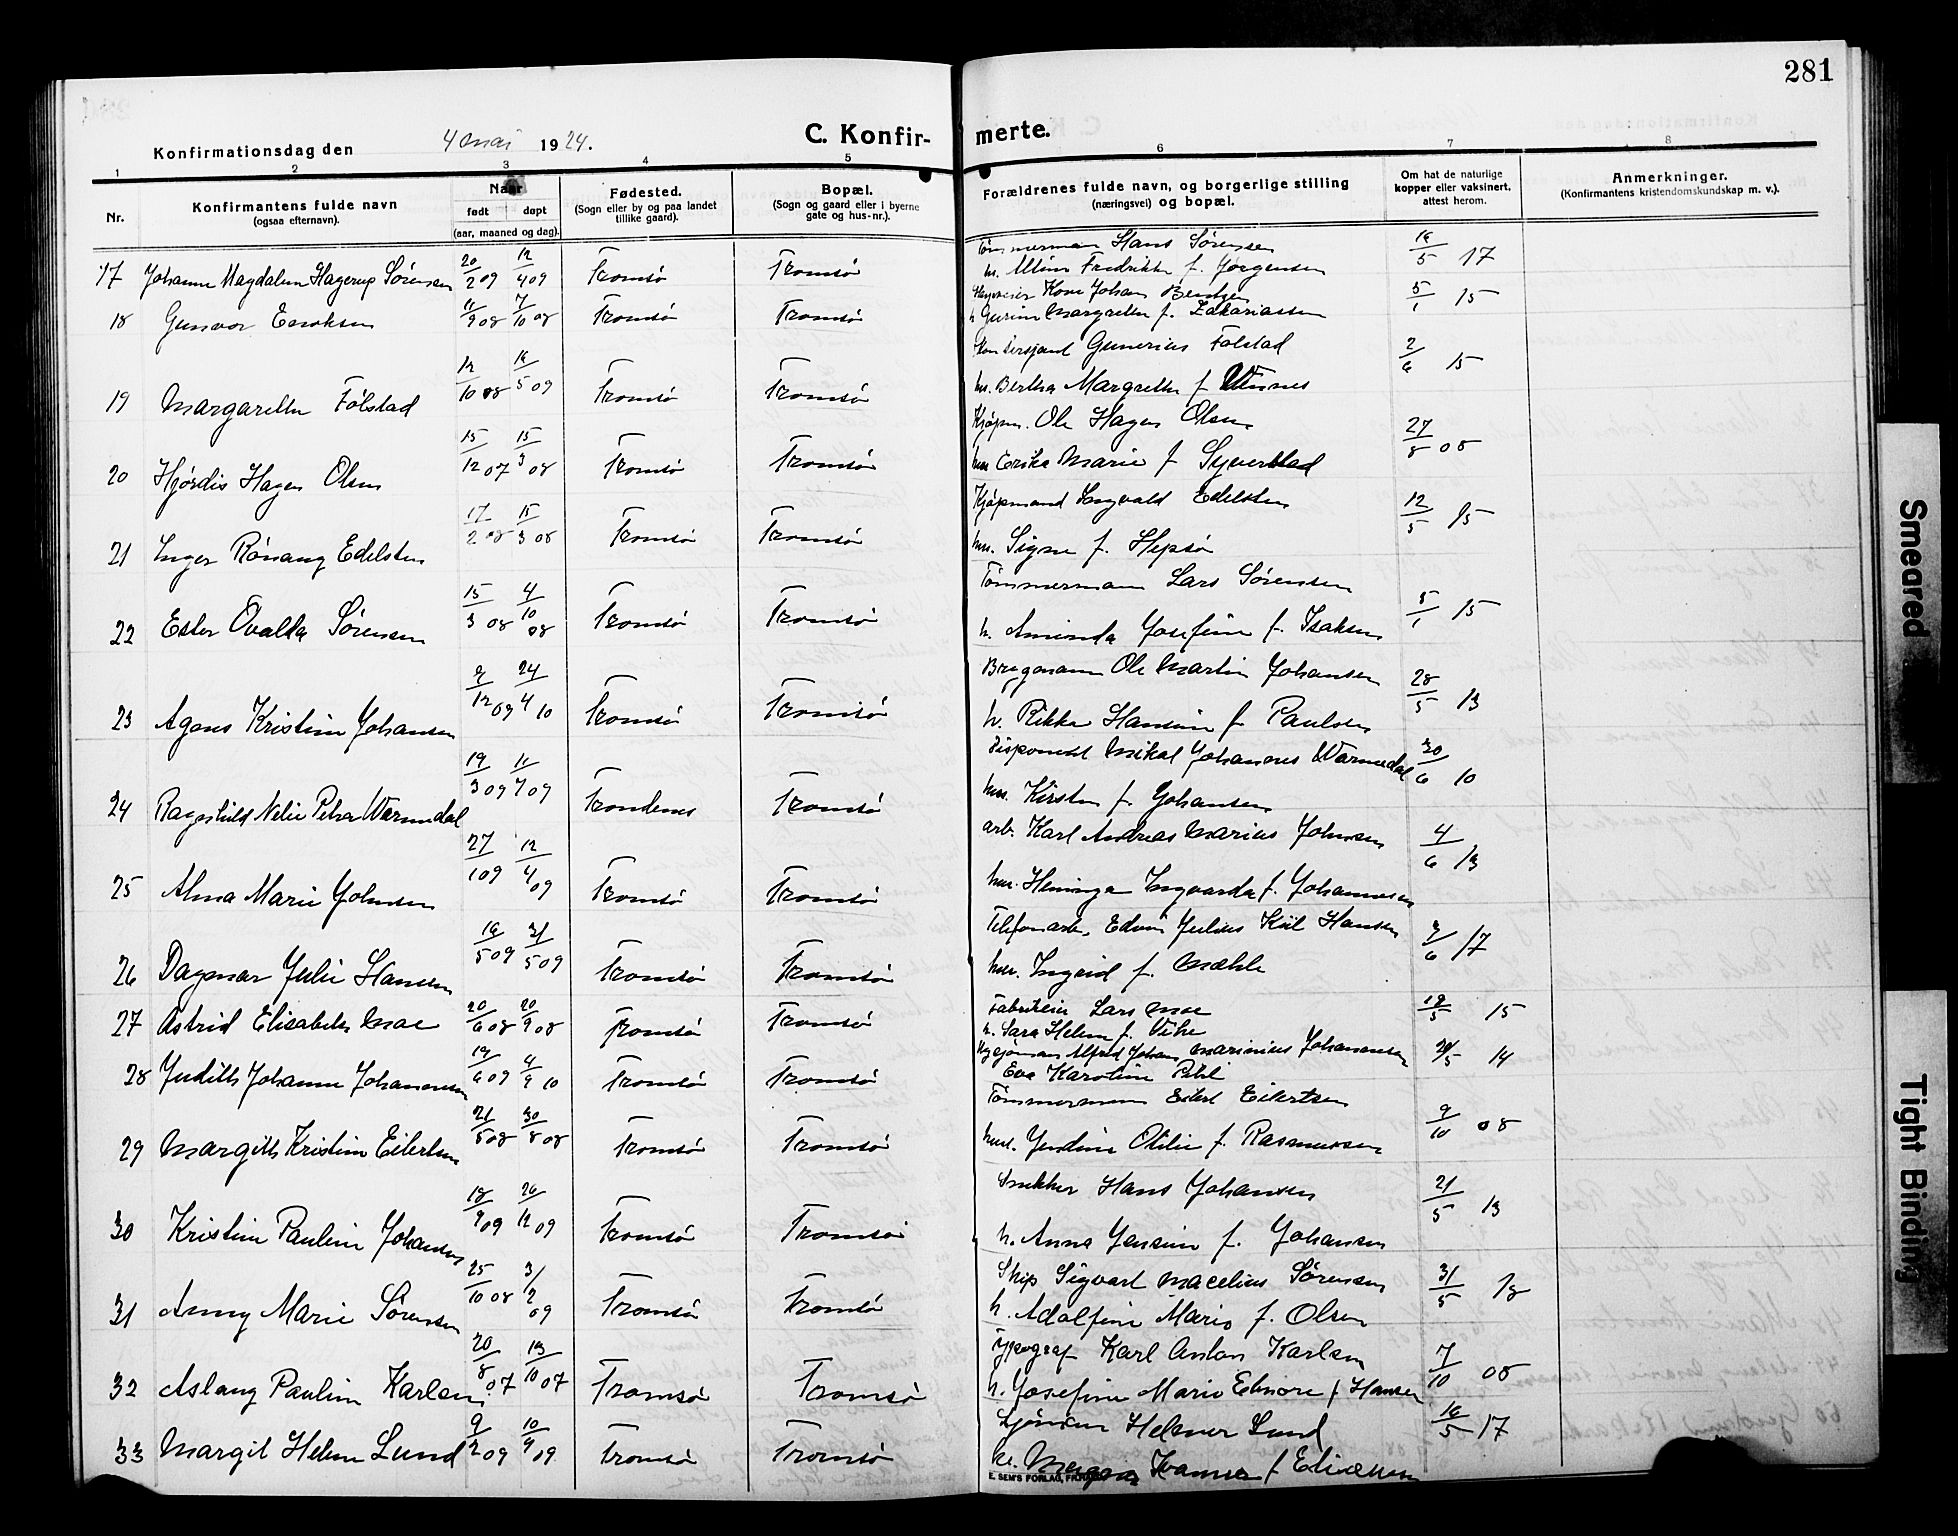 281
Konfirmationsdag den 4 mai 1924.
C. Konfir- merte.
1 2 3 4 5 6 7 8
Nr.
Konfirmantens fulde navn
(ogsaa efternavn).
Naar
født døpt
(aar, maaned og dag).
Fødested.
(Sogn eller by og paa landet
tillike gaard).
Bopæl.
(Sogn og gaard eller i byerne
gate og hus-nr.).
Forældrenes fulde navn, og borgerlige stilling
(næringsvei) og bopæl.
Om hat de naturlige
kopper eller vaksinert,
attest herom.
Anmerkninger.
(Konfirmantens kristendomskundskap m. v.).
17 Johanne Magdalene Hagerup Sørensen 20/2 09 12/4 09 Tromsø Tromsø Tømmermann Hans Sørensen 16/5 17
h. Fredrikke f. Jørgensen
18 Gunvor 11/9 08 7/10 08 Tromsø Tromsø Johan Bentzen 5/1 15
h. Margrethe f. Zakariassen
19 Margarethe Følstad 12/10 08 16/5 09 Tromsø Tromsø Gunerius Følstad 2/6 15
hu. Bertha Margrethe f.
20 Hjørdis Hagen Olsen 15/12 07 15/3 08 Tromsø Tromsø Kjøpm. Ole Hagen Olsen 27/8 08
hu. Erika Marie f. Syverstad
21 Inger Rønaug Edelsten 17/2 08 15/3 08 Tromsø Tromsø Kjøpmand Ingvald Edelsten 12/5 15
hu. Signe f. Hepsø
22 Ester Ovalda Sørensen 15/3 08 4/10 08 Tromsø Tromsø Tømmermann Lars Sørensen 5/1 15
h. Aminda Josefine f. Isaksen
23 Agnes Kristine Johansen 2/12 09 24/4 10 Tromsø Tromsø Bryggemann Ole Martin Johansen 28/5 13
h. Rikke Hansine f. Paulsen
24 Ragnhild Nelie Petra Warmedal 19/3 09 11/7 09 Trondenes Tromsø Disponent Mikal Johannes Warmedal 30/6 10
hu. Kirsten f. Johansen
25 Alma Marie Johnsen 27/1 09 12/4 09 Tromsø Tromsø arb. Karl Andreas Marius Johnsen 4/6 13
hu. Henninga Ingvarda f. Johannesen
26 Dagmar Julie Hansen 16/5 09 31/5 09 Tromsø Tromsø Telefonarb. Edvin Julius Kiil Hansen 2/6 17
hu. Ingrid f. Mæhle
27 Astrid Elisabeth Moe 20/6 08 20/9 08 Tromsø Tromsø Lars Moe 12/5 15
h. Sara Helene f. Vike
28 Judith Johanne Johannesen 19/6 09 4/9 10 Tromsø Tromsø Alfred Johan Marinius Johannesen 14
Eva Karoline
29 Margith Kristine Eilertsen 21/5 08 30/8 08 Tromsø Tromsø Tømmermann Eilert Eilertsen 9/10 08
hu. Justine Otilie f. Rasmussen
30 Kristine Pauline Johansen 18/9 09 26/12 09 Tromsø Tromsø Snekker Hans Johansen 21/5 13
h. Anna Jensine f. Johansen
31 Anny Marie Sørensen 25/10 08 3/2 09 Tromsø Tromsø Skip. Sigvart Macelius Sørensen 31/5 18
h. Adolfine Marie f. Olsen
32 Aslaug Pauline Karlsen 20/8 07 13/10 07 Tromsø Tromsø Typograf Karl Anton Karlsen 7/10 08
h. Josefine Marie Elnore f. Hansen
33 Margit Helene Lund 9/2 09 10/9 09 Tromsø Tromsø Helmer Lund 16/5 17
E. SEM'S FORLAG,
Smeared
Tight Binding